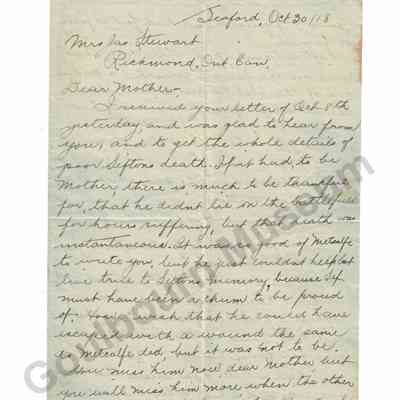 Seaford, Oct 30/18
Mrs Jas Stewart
Richmond, Ont Can.
Dear Mother-
I received your letter of Oct 8th
yesterday, and was glad to hear from
you, and to get the whole details of
poor Seftons death. If it had to be
Mother, there is much to be thankful
for, that he didnt lie on the battlefield
for hours suffering, but that death was
instantaneous. It was so good of Metcalfe
to write you, but he just couldnt help but
be true to Seftons memory, because Sef
must have been a chum to be proud
of. How I wish that he could have
escaped with a wound the same
as Metcalfe did, but it was not to be.
You miss him now dear Mother but
you will miss him more when the other
Goulbourn Museum